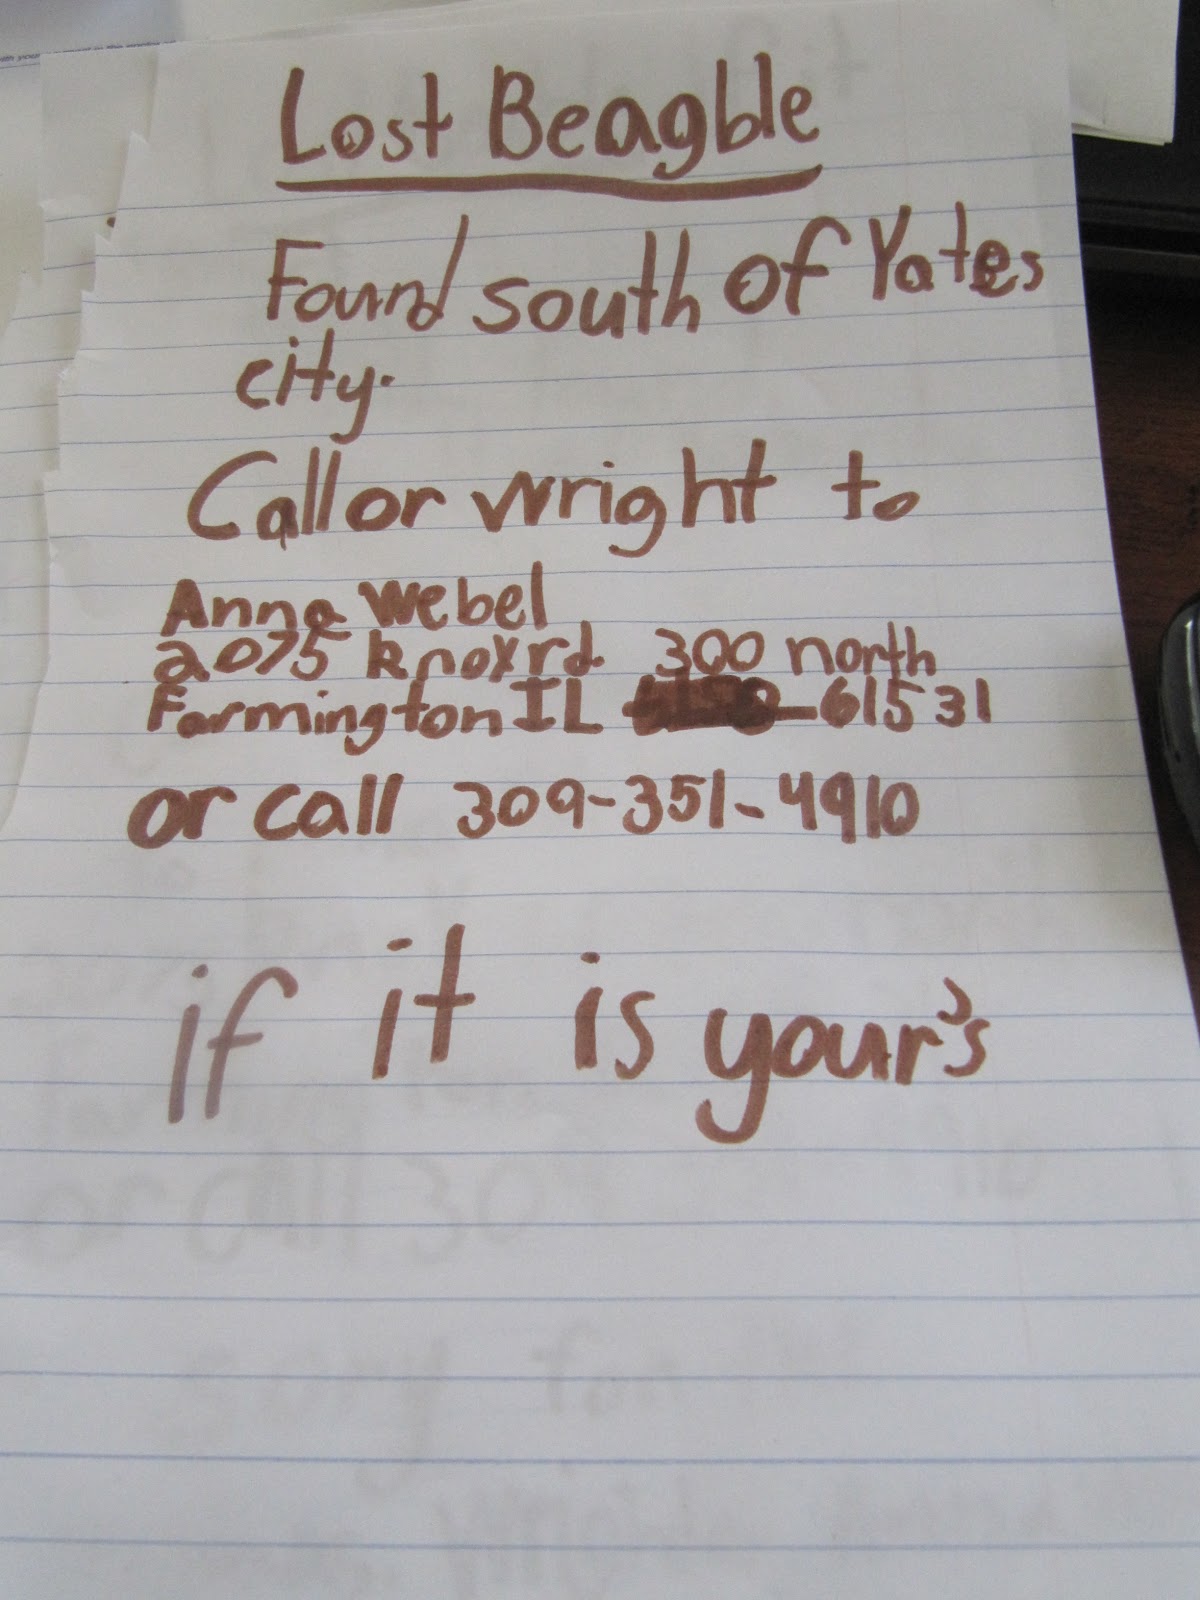 Lost Beagble
Found south of Yates
city.
Call or wright to
Anna Webel
2075 knox rd. 300 north
Farmington IL 61531
or call 309-351-4910
if it is your's